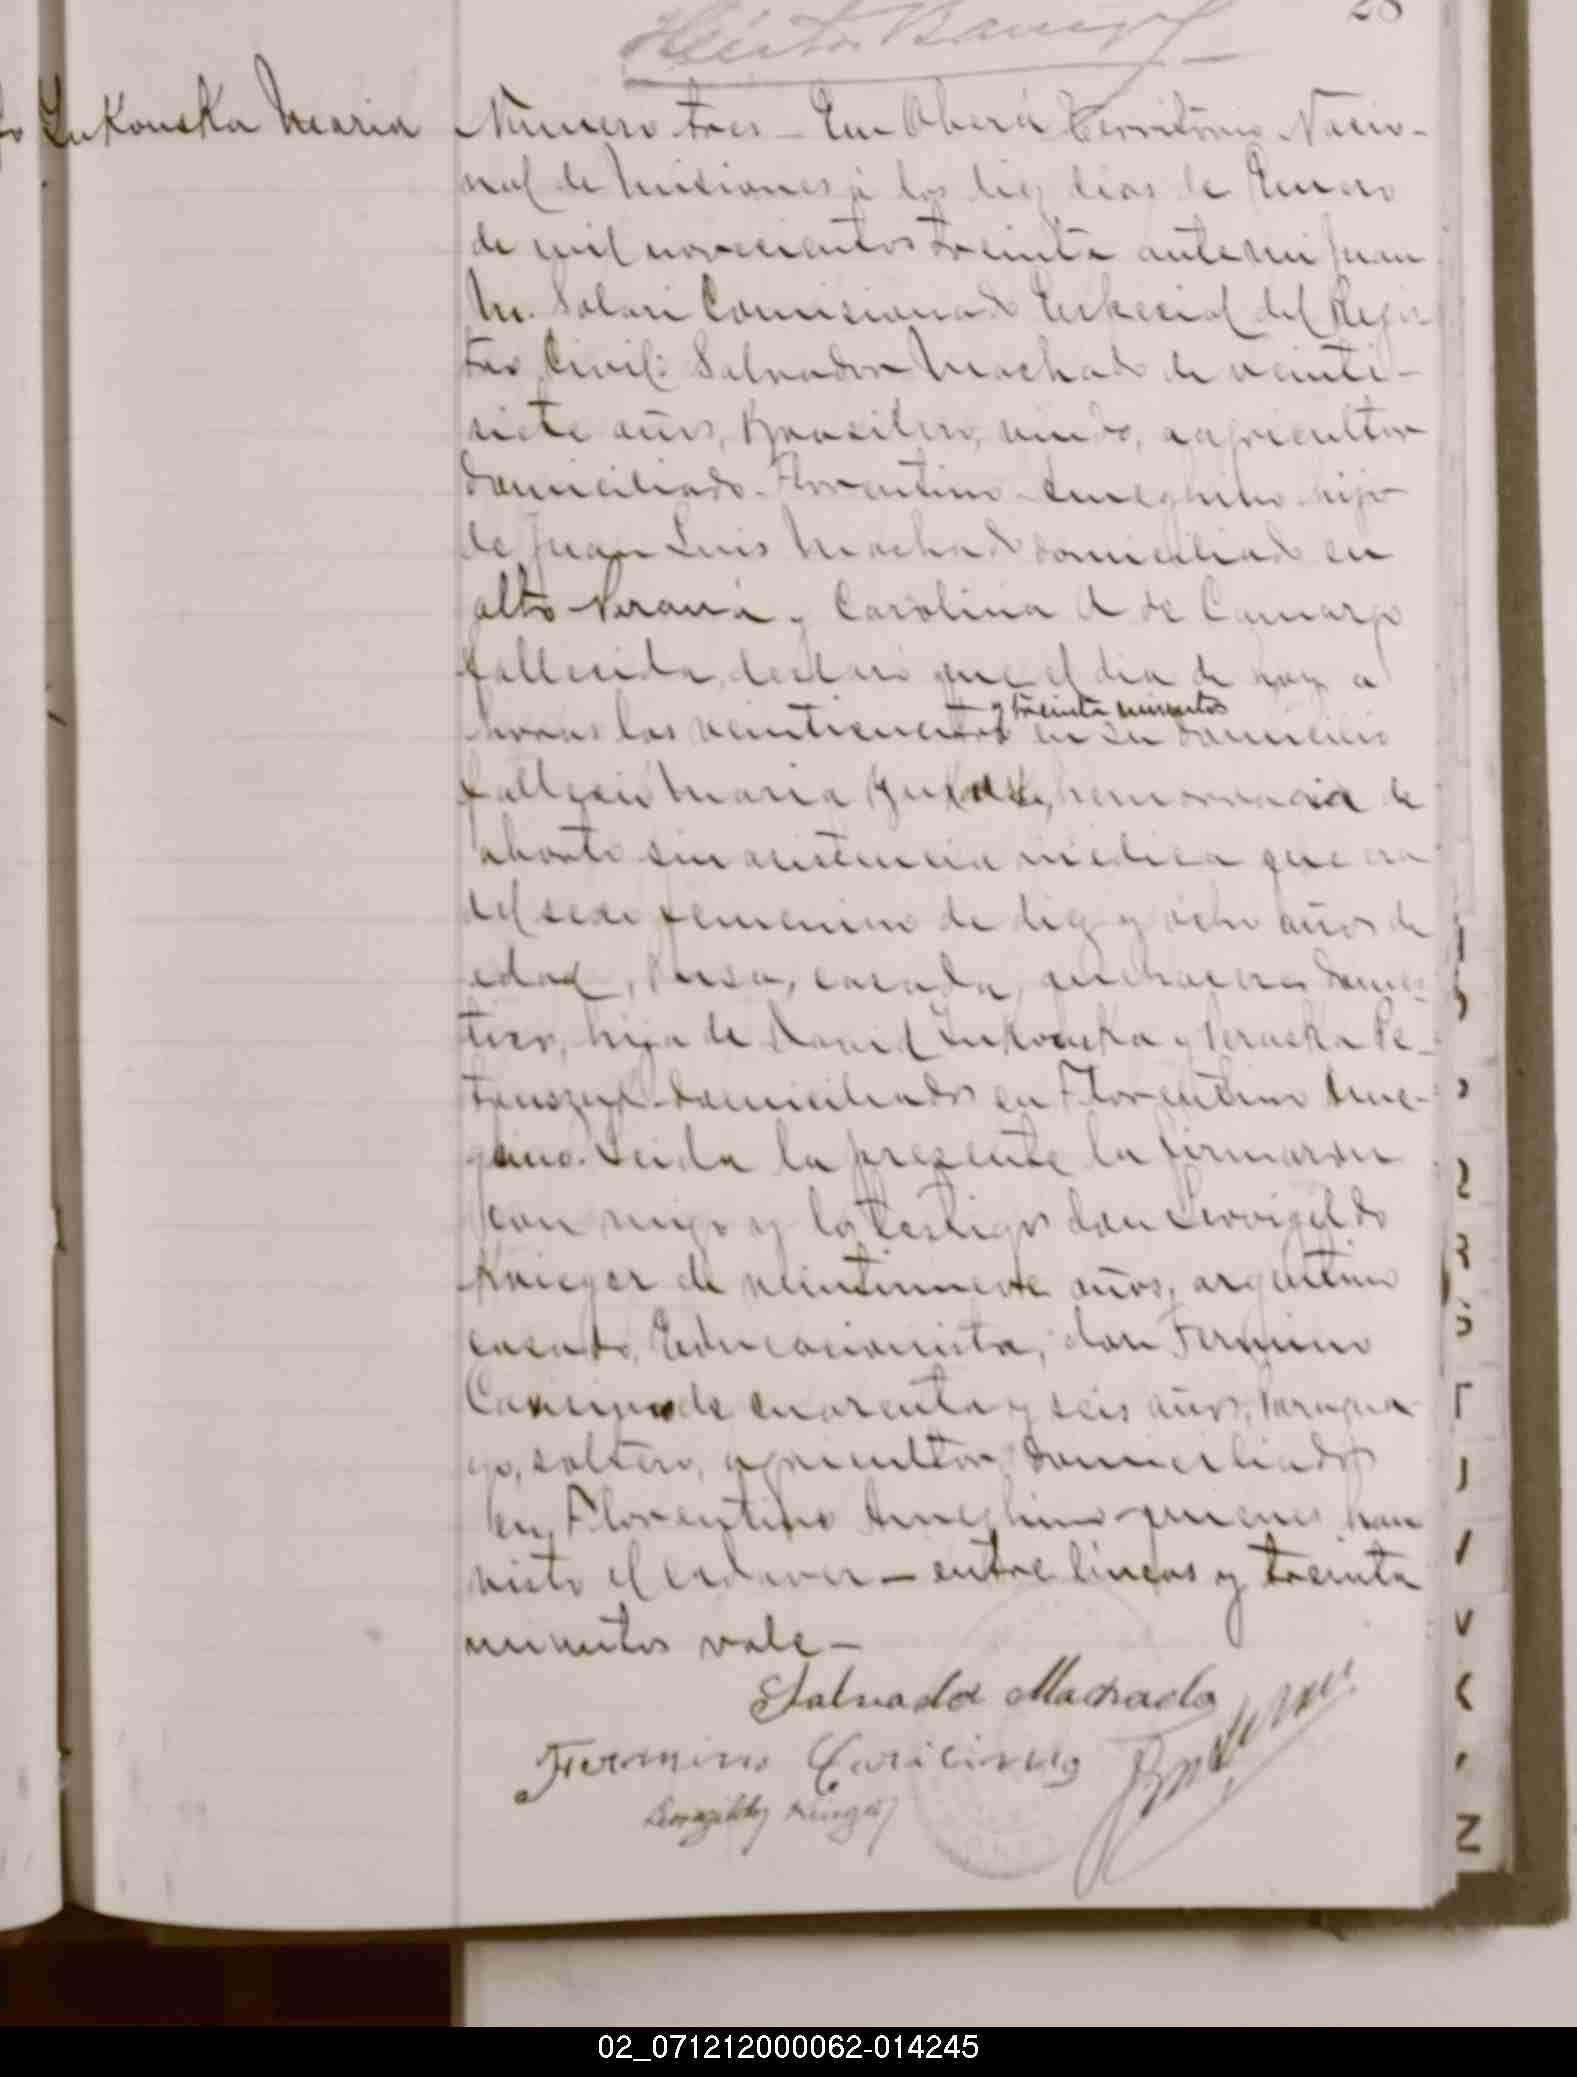 28
Lukouska Maria
Número tres - En Oberá Territorio Nacio-
nal de Misiones á los diez dias de Enero
de mil novecientos treinta ante mi Juan
M. Solari Comisionado Especial del Regis-
tro Civil: Salvador Machado de veinti-
siete años, Brasilero, viudo, agricultor
domiciliado Florentino Ameghino hijo
de Juan Luis Machado domiciliado en
alto Paraná y Carolina A de Camargo
fallecida, declaró que el dia de hoy a
y treinta minutos
horas las veinticuatro en su domicilio
falleció Maria hemorragia de
aborto sin asistencia médica que era
del sexo femenino de diez y ocho años de
edad, Rusa, casada, quehaceres domes-
tico, hija de David Lukouska y Pe-
domiciliados en Florentino Ame-
ghino. Leida la presente la firmaron
con migo y los testigos don Leovigildo
Krieger de veintinueve años, argentino
casado, Educacionista, don Fermino
de cuarenta y seis años, Paragua-
yo, soltero, agricultor domiciliados
en Florentino Ameghino quienes han
visto el cadaver - entre líneas y treinta
minutos vale -
Salvador Machado
Fermino
02_071212000062-014245